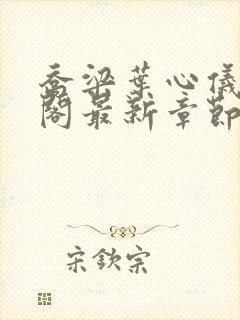 乔梁叶心仪
阁最新章节
宋钦宗